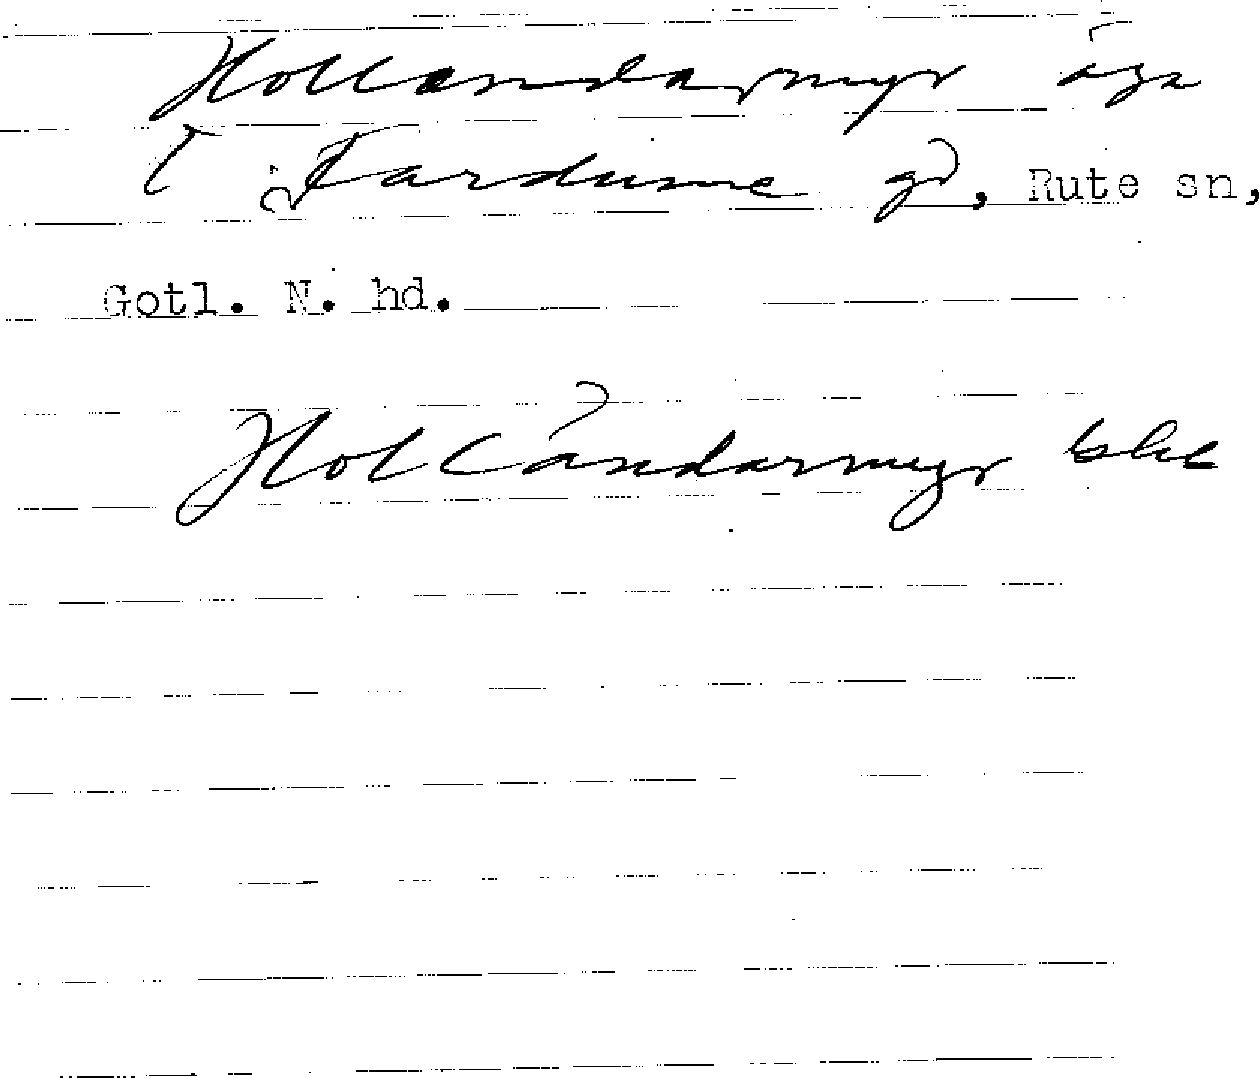 Hollandarmyr äga
t Fardume gd, Rute sn,
Gotl. N. hd.
Hollandarmyr